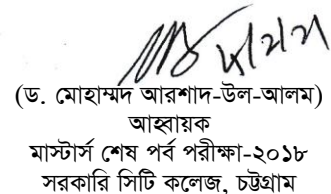 (ড. মোহাম্মদ আরশাদ-উল-আলম)
আহ্বায়ক
মাস্টার্স শেষ পর্ব পরীক্ষা-২০১৮
সরকারি সিটি কলেজ, চট্টগ্রাম